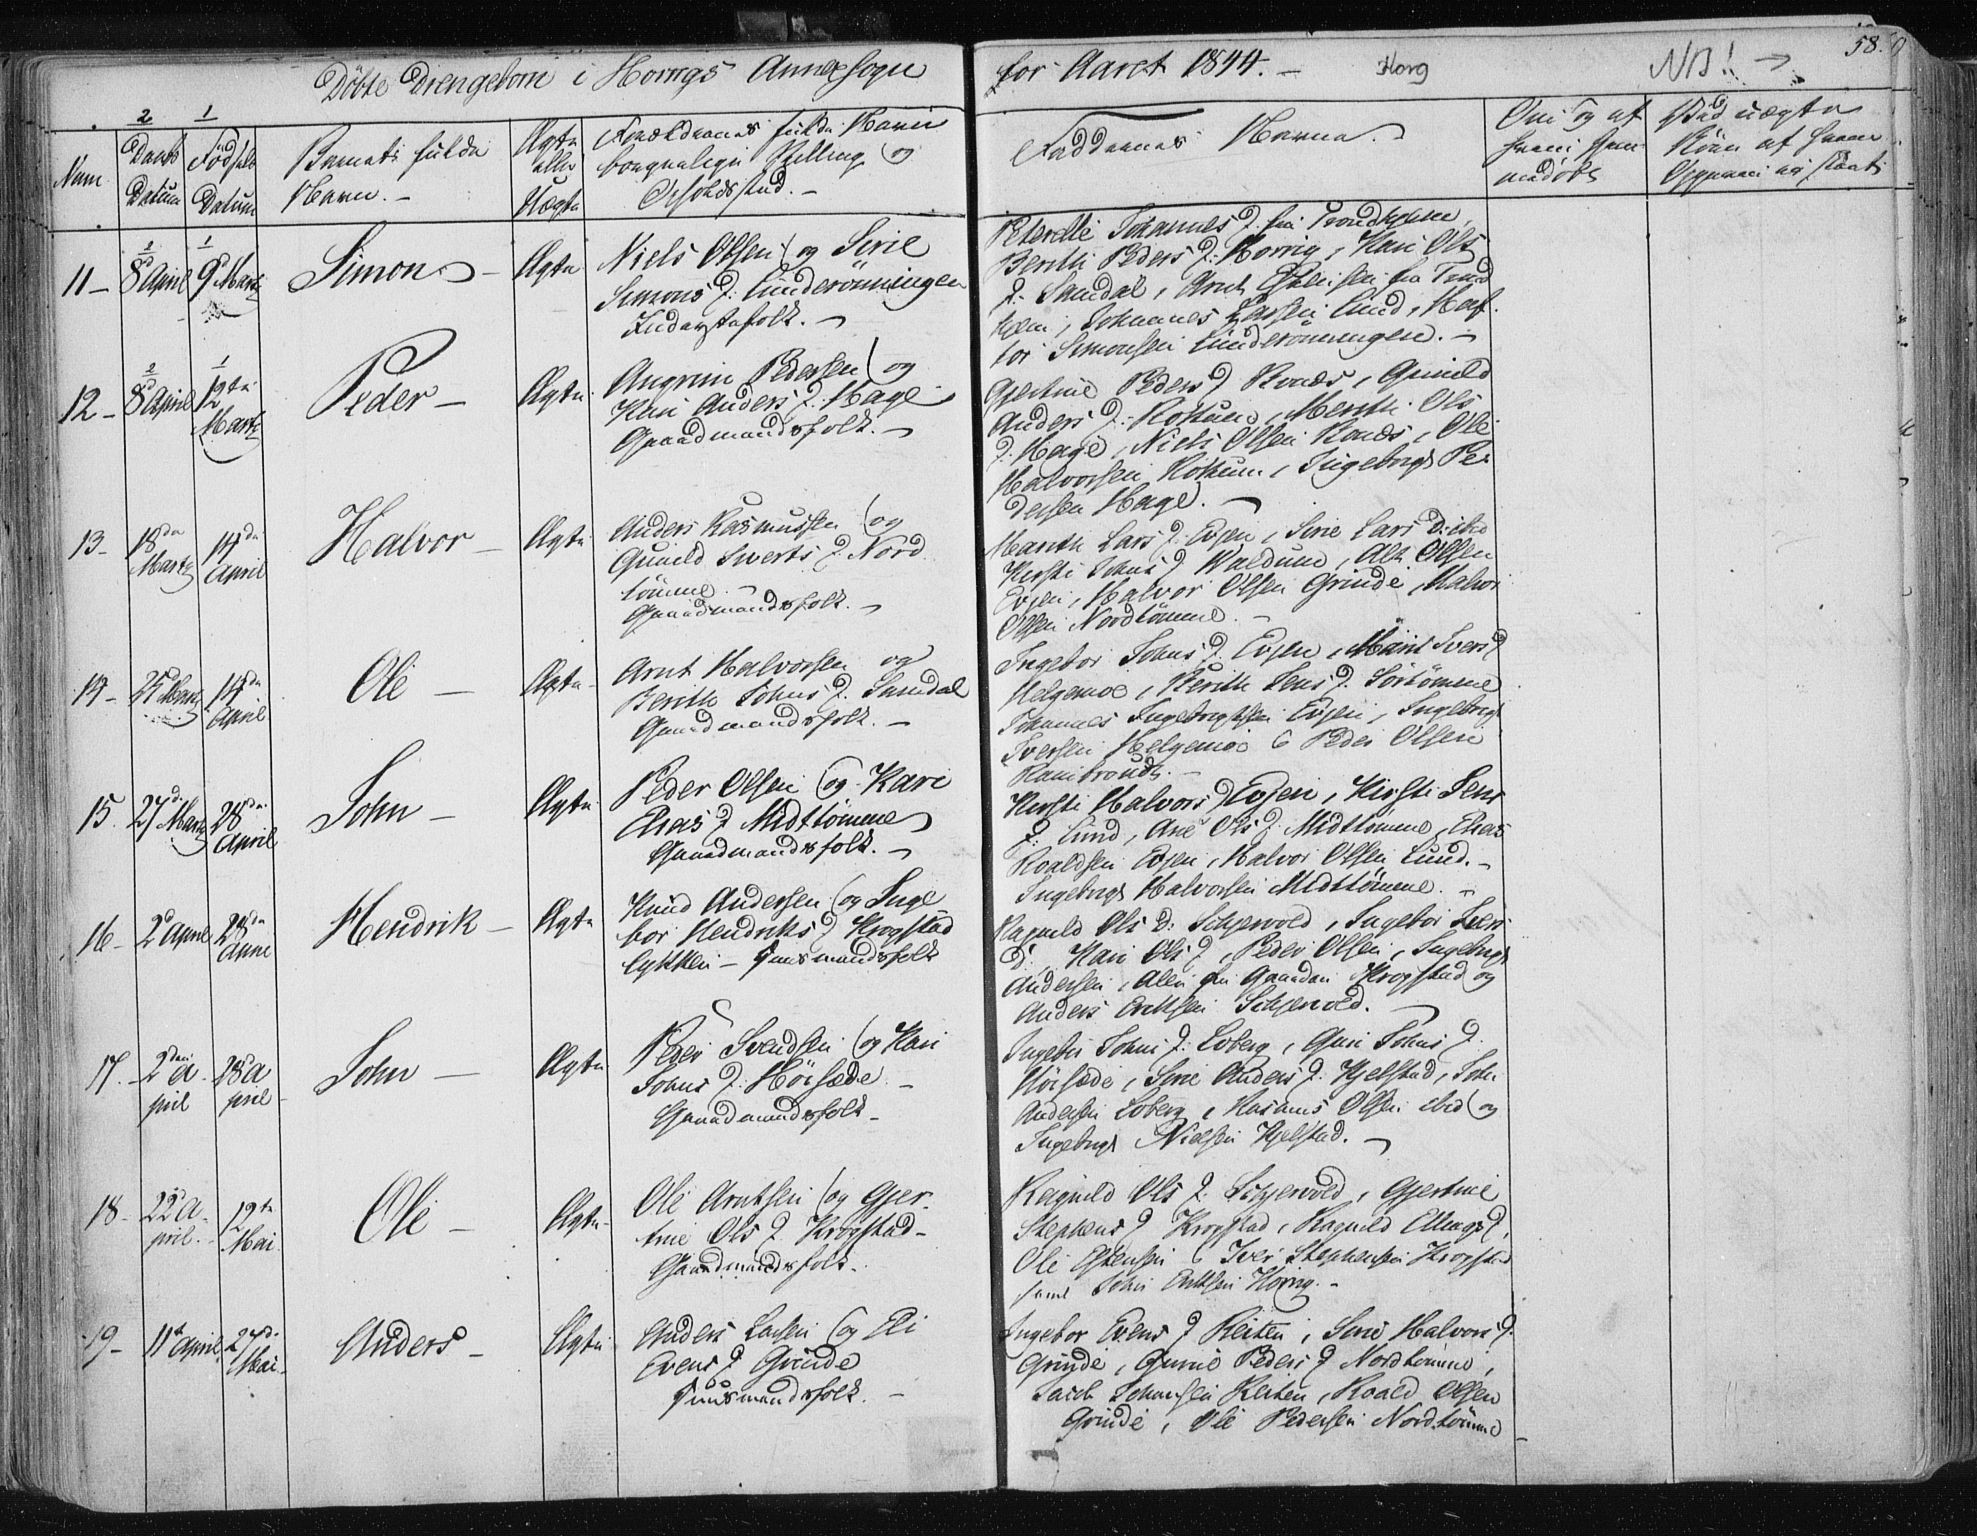 Døbte Drengebørn i Horrigs Annexsogn for Aaret 1844. –
Horg
NB! →
58.
2 1
Num.
Daabs Datum
Fødsels Datum
Barnets fulde
Navn. –
Ægte
eller
Uægte
Forældrenes fulde Navn
borgerlige Stilling og
Opholdsstæd. –
Faddernes Navne.
Om og af
hvem hjem-
medøbt
Ved uægte
11 – 8de April 9de Martz Simon – Ægte
Niels Olsen og Sirie
Simons D: Lunderønningen
Inderstefolk. –
Peterelle Johannes D. fra Trondhjem,
Berith Peders D: Horrig, Kari Ols
D. Samdal, Arnt Estensen fra Trond
hiem, Johannes Larsen Lund, Haf-
tor Simonsen Lunderønningen. –
12 – 8de April 12te Martz Peder – Ægte
Angrim Pedersen og
Kari Anders D: Hage
Gaardmandsfolk. –
Gjertine Peders D Kvaes, Gunild
Anders D: Røskum, Merith Ols
D: Hage, Niels Olsen Kvaes, Ole
Halvorsen Røskum, Ingebrigt Pe-
dersen Hage. –
13 – 18de Martz 14de April Halvor – Ægte
Anders Rasmussen og
Gunild Siverts D. Nord
tømme
Gaardmandsfolk. –
Marith Lars D. Evjen, Sirie Lars D: ibid
Kirsti Johns D Waldum, Olsen
Evjen, Halvor Olsen Grinde, Halvor
Olsen Nordtømme. –
14 – 25de Martz 14de April Ole – Ægte
Arnt Halvorsen og
Berith Johns D. Samdal
Gaardmandsfolk. –
Ingebor Johns D. Evjen, Marit Ivers D
Helgemoe, Berith Jens D. Sørtømme
Johannes Ingebrigtsen Evjen, Ingebrigt
Iversen Helgemoe & Peder Olsen
15. 27de Martz 28de April John – Ægte
Peder Olsen og Kari
Eleas D Midttømme
Gaardmandsfolk. –
Kirsti Halvors D Evjen, Kirsti Jens
D: Lund, Ane Ols D. Midttømme, Eleas
Roaldsen Evjen, Halvor Olsen Lund. –
Ingebrigt Halvorsen Midttømme. –
16 – 2de April 28de April Hendrik – Ægte
Knud Andersen og Inge
bor Hendriks D Krogstad
lykken – Huusmandsfolk
Ragnild Ols D: Schjervold, Ingebor Lars
D: Kari Ols D, Peder Olsen, Ingebrigt
Andersen, alle fra Gaarden Krogstad og
Anders Eriksen Schjervold. –
17. – 2den April 28de April John – Ægte
Peder Svendsen og Kari
Johns D: Hørsæde –
Gaardmandsfolk –
Ingebor Johns D: Loberg, Guri Johns D.
Hørsæde, Sirie Anders D. Kjelstad, John
Andersen Loberg, Rasmus Olsen ibid og
Ingebrigt Nielsen Kjelstad. –
18 – 22de April – 12te Mai Ole – Ægte
Ole Arntsen og Gjer-
trine Ols D. Krogstad –
Gaardmandsfolk –
Ragnild Ols D: Schjervold, Gjertine
Stephens D Krogstad, Ragnild Ellings D,
Ole Estensen & Iver Stephensen Krogstad
samt John Eriksen Horrig. –
19 – 11te April 27de Mai – Anders – Ægte
Anders Larsen og Eli
Evens D Grinde
Huusmandsfolk. –
Ingebor Evens D Reiten, Sirie Halvors D:
Grinde, Gurrie Peders D Nordtømme,
Jacob Johansen Reiten, Roald Olsen
Grinde, Ole Pedersen Nordtømme –